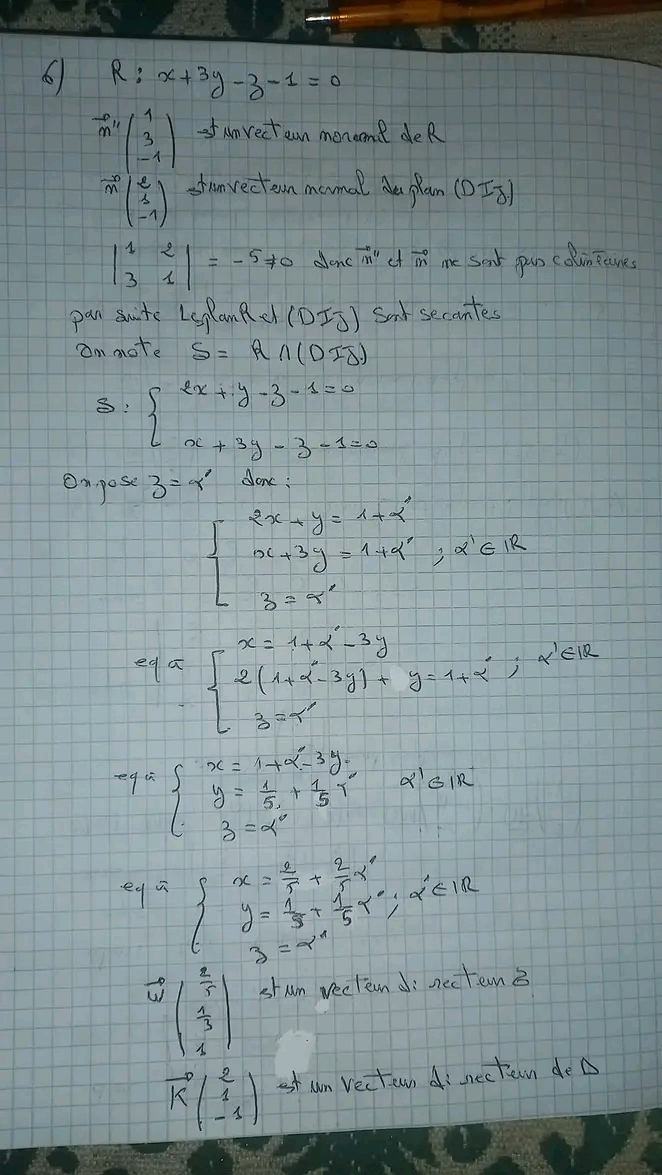 6) R : x + 3y - z - 1 = 0
n⃗'' (1 3 -1) est un vecteur noremal de R
n⃗ (2 1 -1) est un vecteur normal du plan (DIJ)
|1 2; 3 1| = -5 ≠ 0 donc n⃗'' et n⃗ ne sont pas colinéaires
par suite Le plan R et (DIJ) sont secantes
On note S = R ∩ (DIJ)
S : { 2x + y - z - 1 = 0
x + 3y - z - 1 = 0
On pose z = α' donc :
{ 2x + y = 1 + α'
x + 3y = 1 + α' ; α' ∈ IR
z = α'
eq à { x = 1 + α' - 3y
2(1 + α' - 3y) + y = 1 + α' ; α' ∈ IR
z = α'
eq à { x = 1 + α' - 3y
y = 1/5 + 1/5 α' α' ∈ IR
z = α'
eq à { x = 2/5 + 2/5 α'
y = 1/5 + 1/5 α' ; α' ∈ IR
z = α'
w⃗ (2/5 1/3 1) est un vecteur directeur S
K⃗ (2 1 -1) est un vecteur directeur de Δ